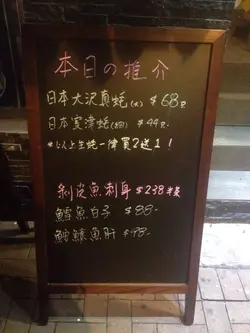 本日の推介
日本大沢真蚝(大) $68只
日本室津蚝(細) $44只
*以上生蚝一律買2送1！
剥皮魚刺身 $238半隻
鱈魚白子 $88-
鮟鱇魚肝 $98-